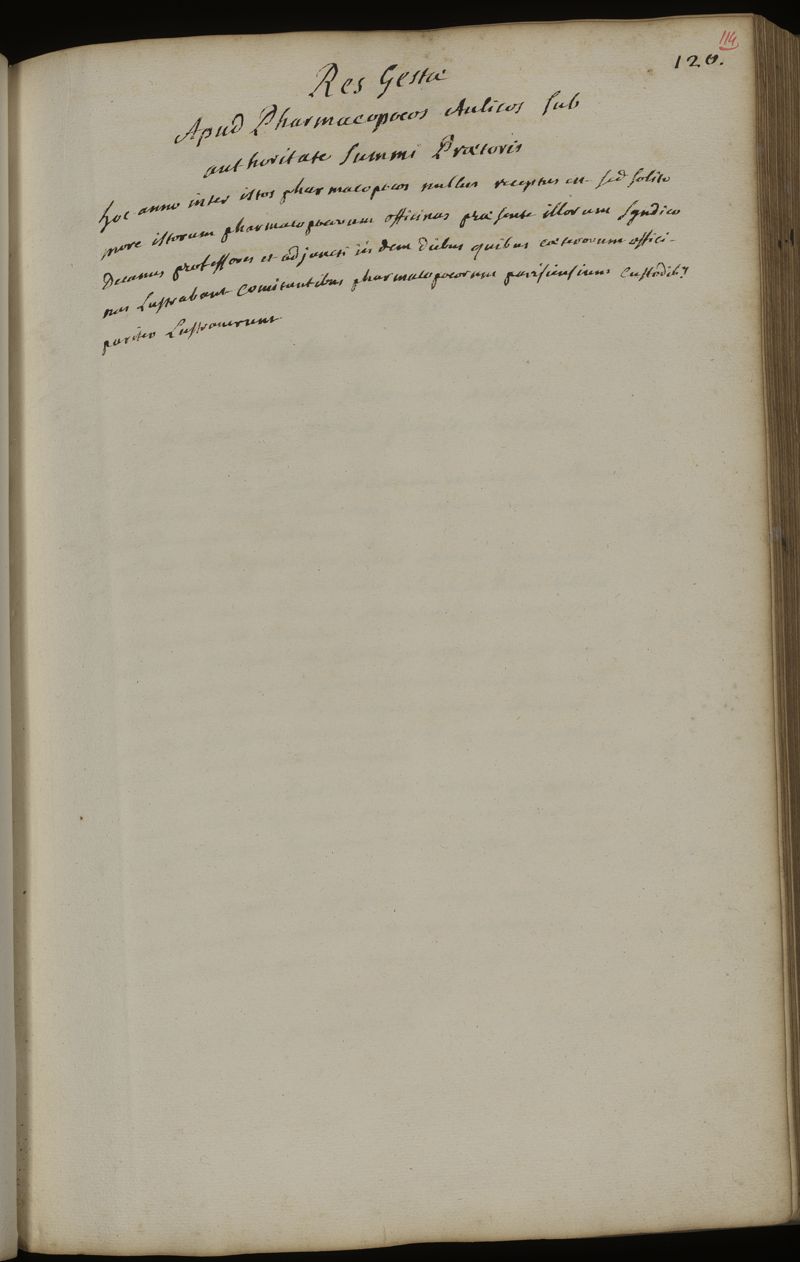 114
120.
Res Gestæ
Apud Pharmacopoeos Aulicos sub
authoritate summi Prætoris
hoc anno inter istos pharmacopoeos nullus receptus est sed solito
more istorum pharmacopoeorum officinas præsente illorum syndico
Decanus professores et adjuncti iis dem diebus quibus cæterorum offici-
nas Lustrabant comitantibus pharmacopoeorum parisiensium custodib9
pariter Lustraverunt